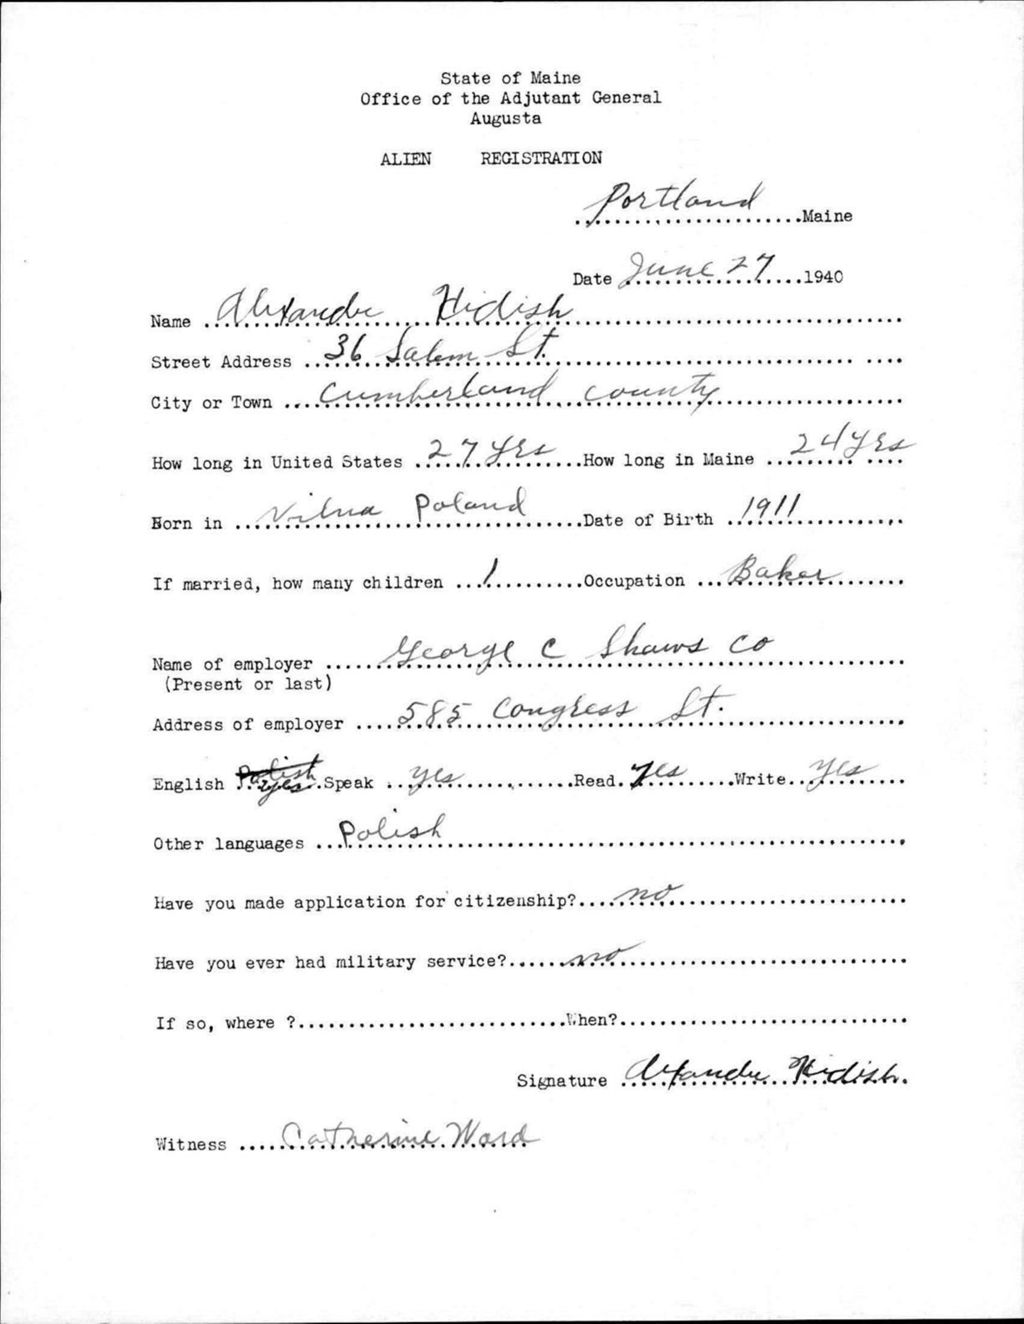 State of Maine
Office of the Adjutant General
Augusta
ALIEN REGISTRATION
Portland Maine
Date June 27 1940
Name Alexander Kidish
Street Address 36 Salem St.
City or Town Cumberland County
How long in United States 27 yrs How long in Maine 24 yrs
Born in Vilna Poland Date of Birth 1911
If married, how many children 1 Occupation Baker
Name of employer George C Shaws Co
(Present or last)
Address of employer 585 Congress St.
English Polish yes Speak yes Read yes Write yes
Other languages Polish
Have you made application for citizenship? no
Have you ever had military service? no
If so, where ? When?
Signature Alexander Kidish
Witness Catherine Ward